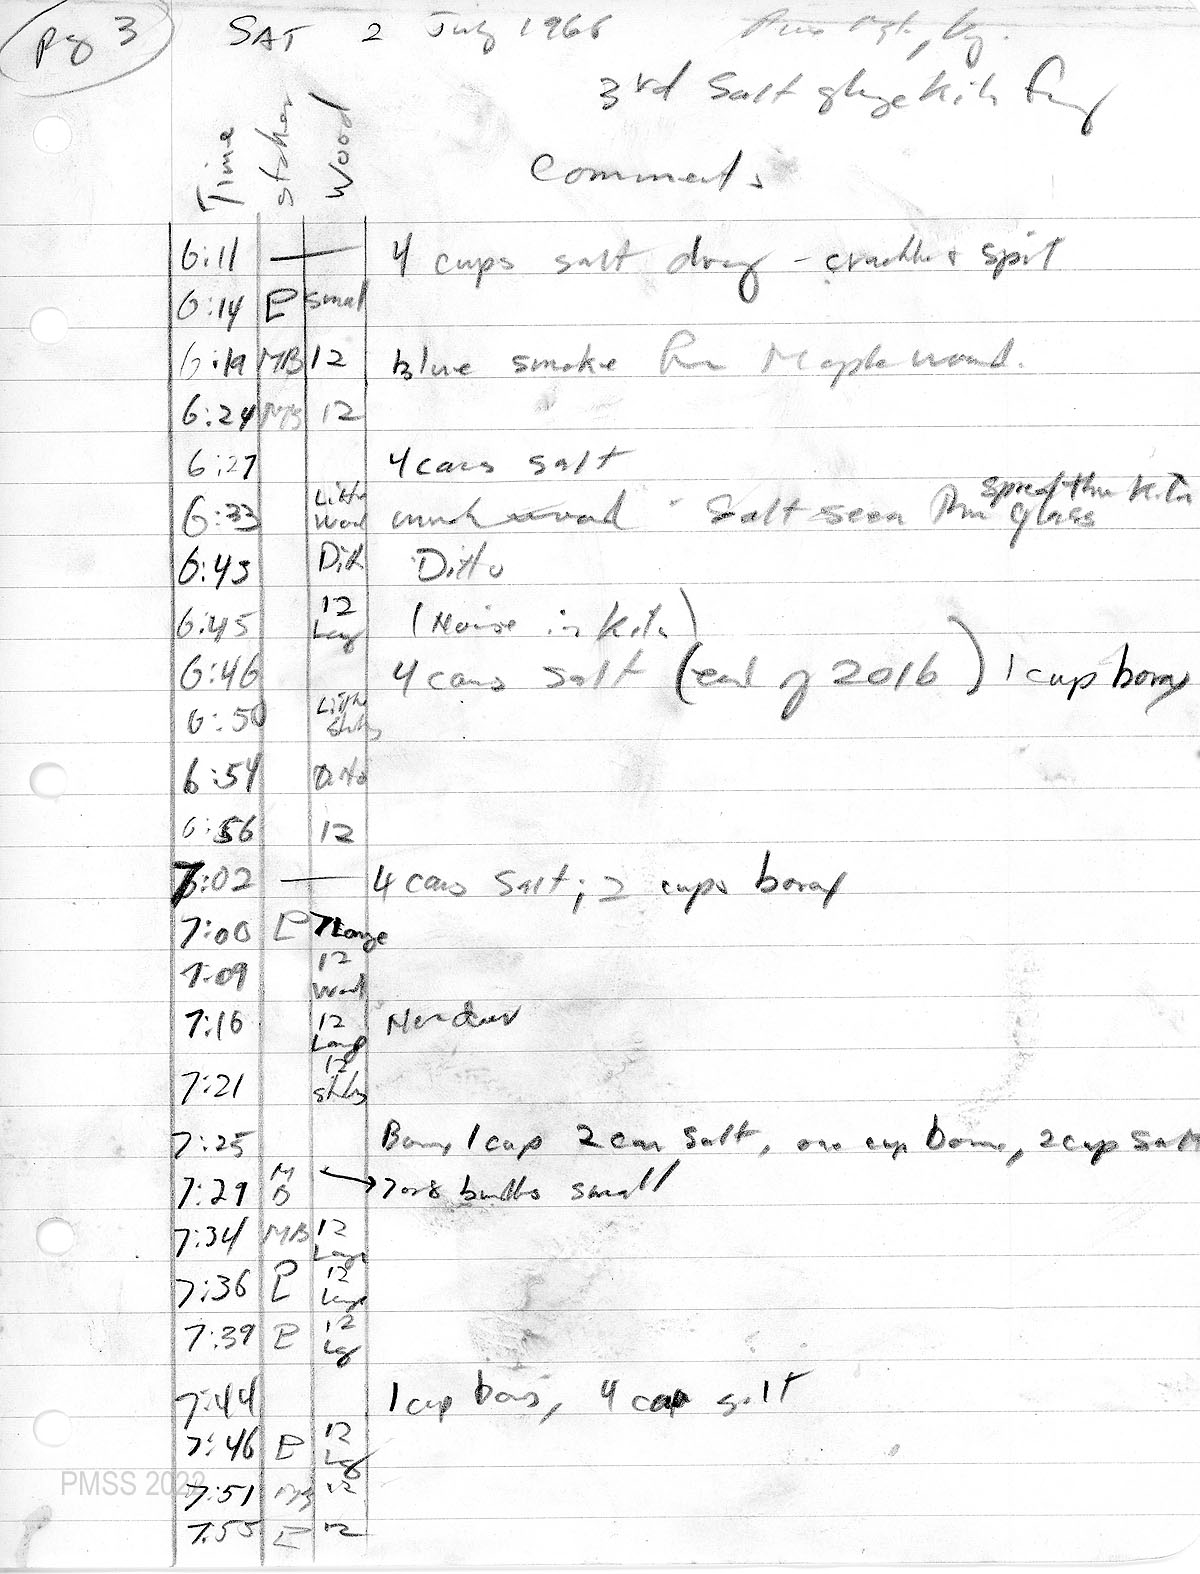 pg 3 SAT 2 July 1966 Pine Mt., Ky.
3rd Salt glaze Kiln
Time Stoker Wood
Comments
6:11 — 4 cups salt dry - crackle + spit
6:14 E Small
6:19 MB 12 blue smoke from Maple wood.
6:24 MB 12
6:27 4 cans salt
6:33 Little Wood Salt seen thru glass spread thru Kiln
6:43 Ditto
6:45 12 Large (Noise in Kiln)
6:46 4 cans Salt (end of 20lb) 1 cup borax
6:50 Little Slabs
6:54 Ditto
6:56 12
7:02 — 4 cans Salt; 2 cups borax
7:00 E 7 Large
7:09 12 Wood
7:16 12 Large
7:21 12 Slabs
7:25 Borax 1 cup 2 can salt, one cup borax, 2 cup salt
7:29 MB → 7 or 8 small
7:34 MB 12 Large
7:36 E 12 Large
7:39 E 12 Large
7:44 1 cup borax, 4 cup salt
7:46 E 12 Large
7:51 MB 12
7:55 E 12
PMSS 2022